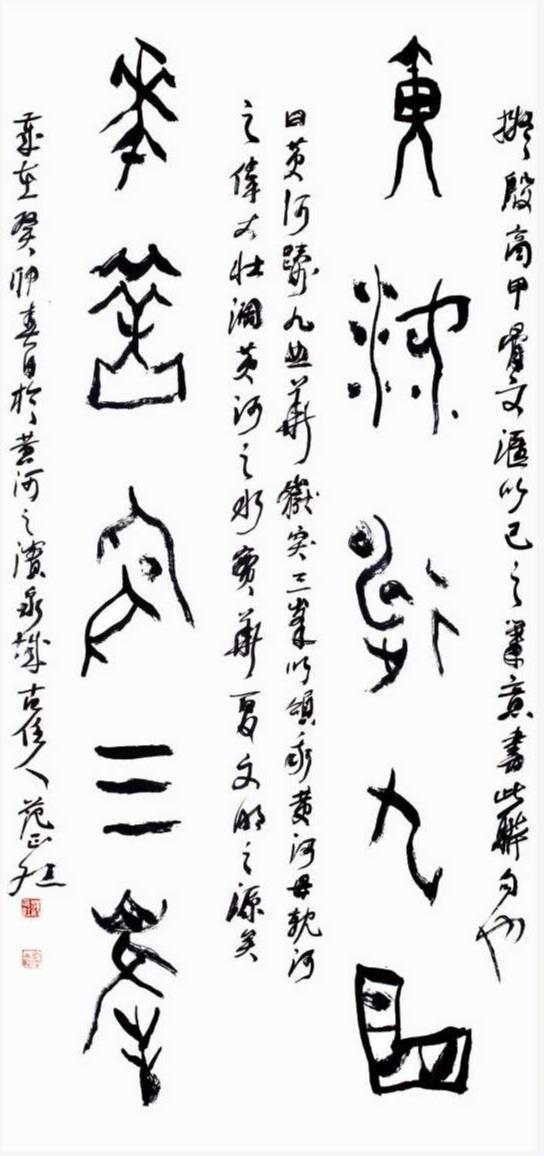 擬殷商甲骨文滙以己之筆意書此聯句也
黄河疏九曲
曰黄河疏九曲華嶽突三峯以頌我黄河母親河
之偉大壯闊黄河之水實華夏文明之源矣
華嶽突三峯
歲在癸卯春日於黄河之濱泉城古任人范正紅